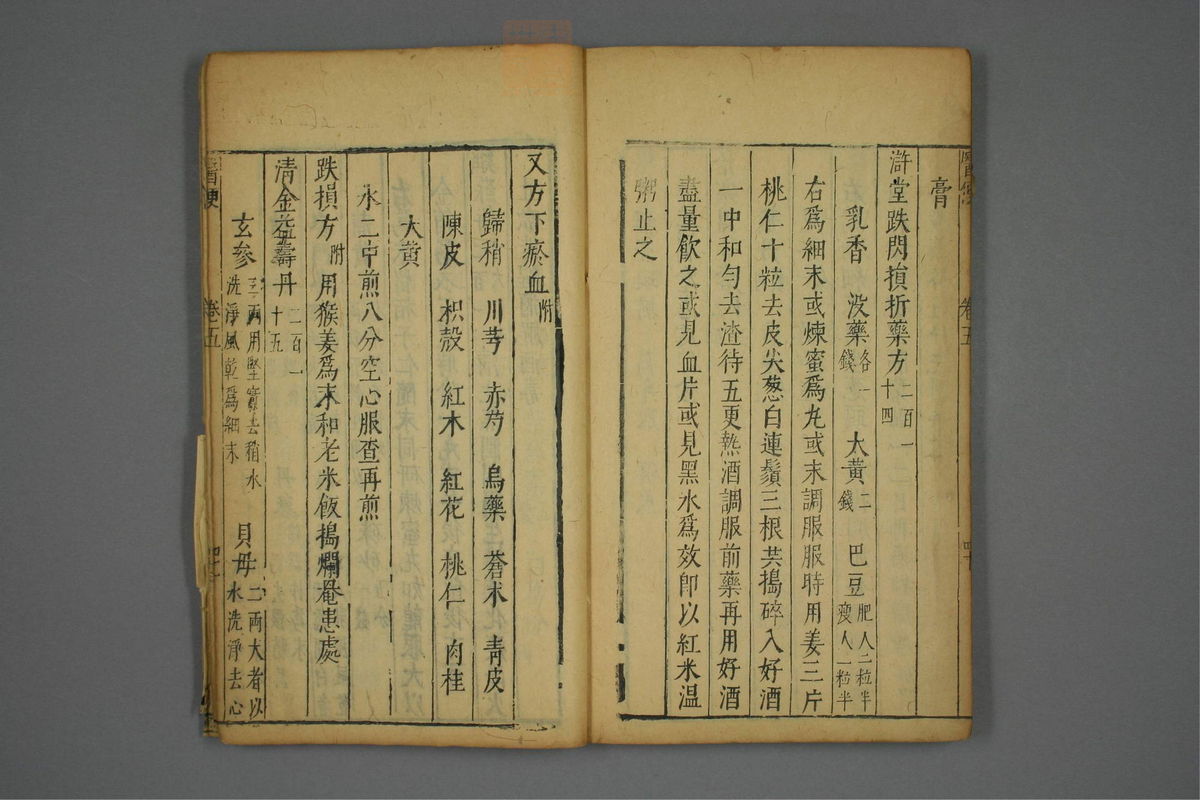 膏
滸堂跌閃損折藥方二百一十四
乳香 没藥各一錢 大黄二錢 巴豆肥人二粒半瘦人一粒半
右爲細末或煉蜜爲丸或末調服服時用姜三片
桃仁十粒去皮尖葱白連鬚三根共搗碎入好酒
一中和勻去渣待五更熱酒調服前藥再用好酒
盡量飲之或見血片或見黑水爲效即以紅米温
粥止之
又方下瘀血附
歸稍 川芎 赤芍 烏藥 蒼术 青皮
陳皮 枳殼 紅木 紅花 桃仁 肉桂
大黄
水二中煎八分空心服查再煎
跌損方附用猴姜爲末和老米飯搗爛罨患處
清金益壽丹二百一十五
玄參三兩用堅實去稍水洗淨風乾爲細末 貝母二兩大者以水洗淨去心
卷五